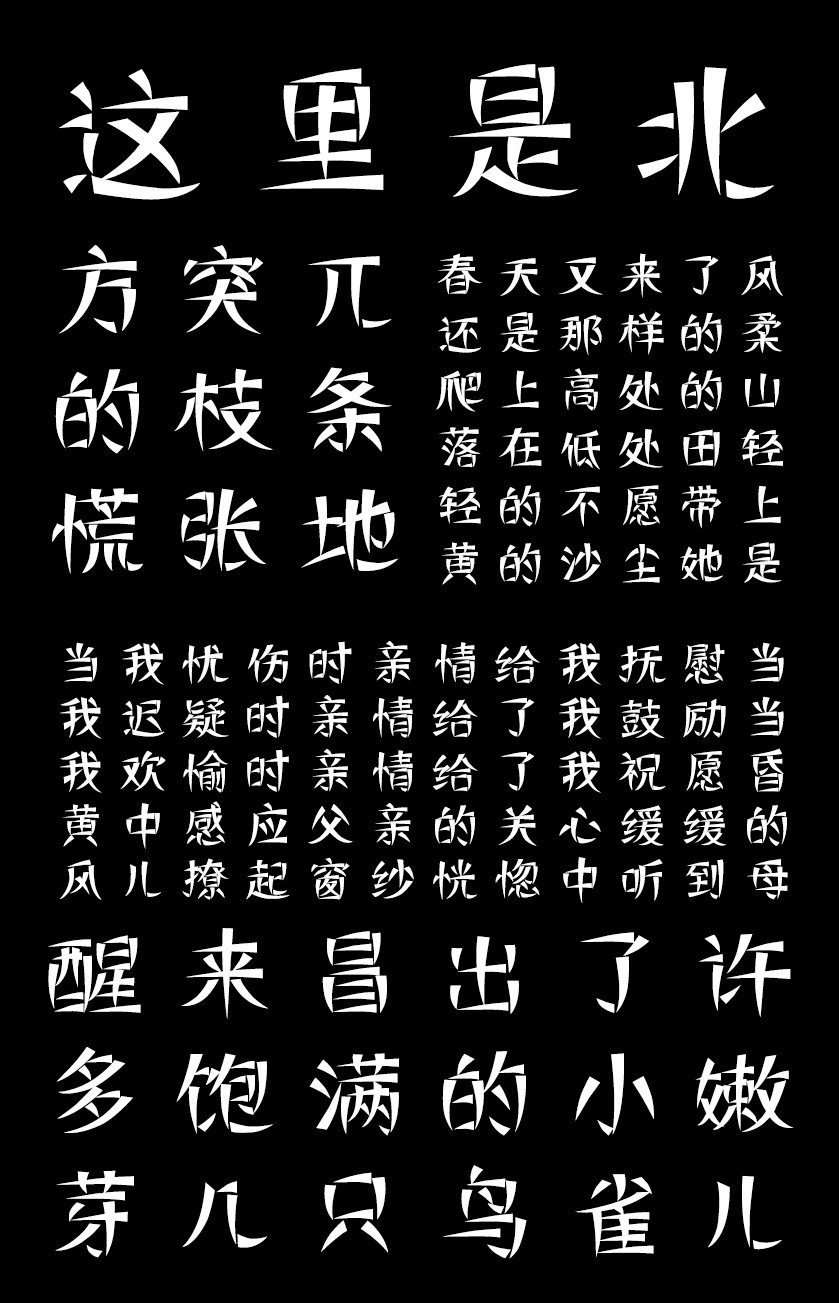 这里是北
方突兀
的枝条
慌张地
春天又来了风
还是那样的柔
爬上高处的山
落在低处田轻
轻的不愿带上
黄的沙尘她是
当我忧伤时亲情给我抚慰当
我迟疑时亲情给了我鼓励当
我欢愉时亲情给了我祝愿昏
黄中感应父亲的关心缓缓的
风儿撩起窗纱恍惚中听到母
醒来昌出了许
多饱满的小嫩
芽几只鸟雀儿